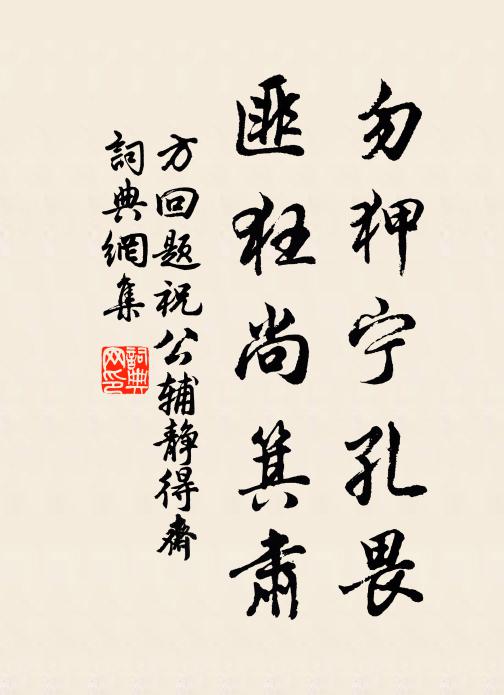 勿狎宁孔畏
匪狂尚箕肃
方回题祝公辅静得齋
詞典網集
詞典网印